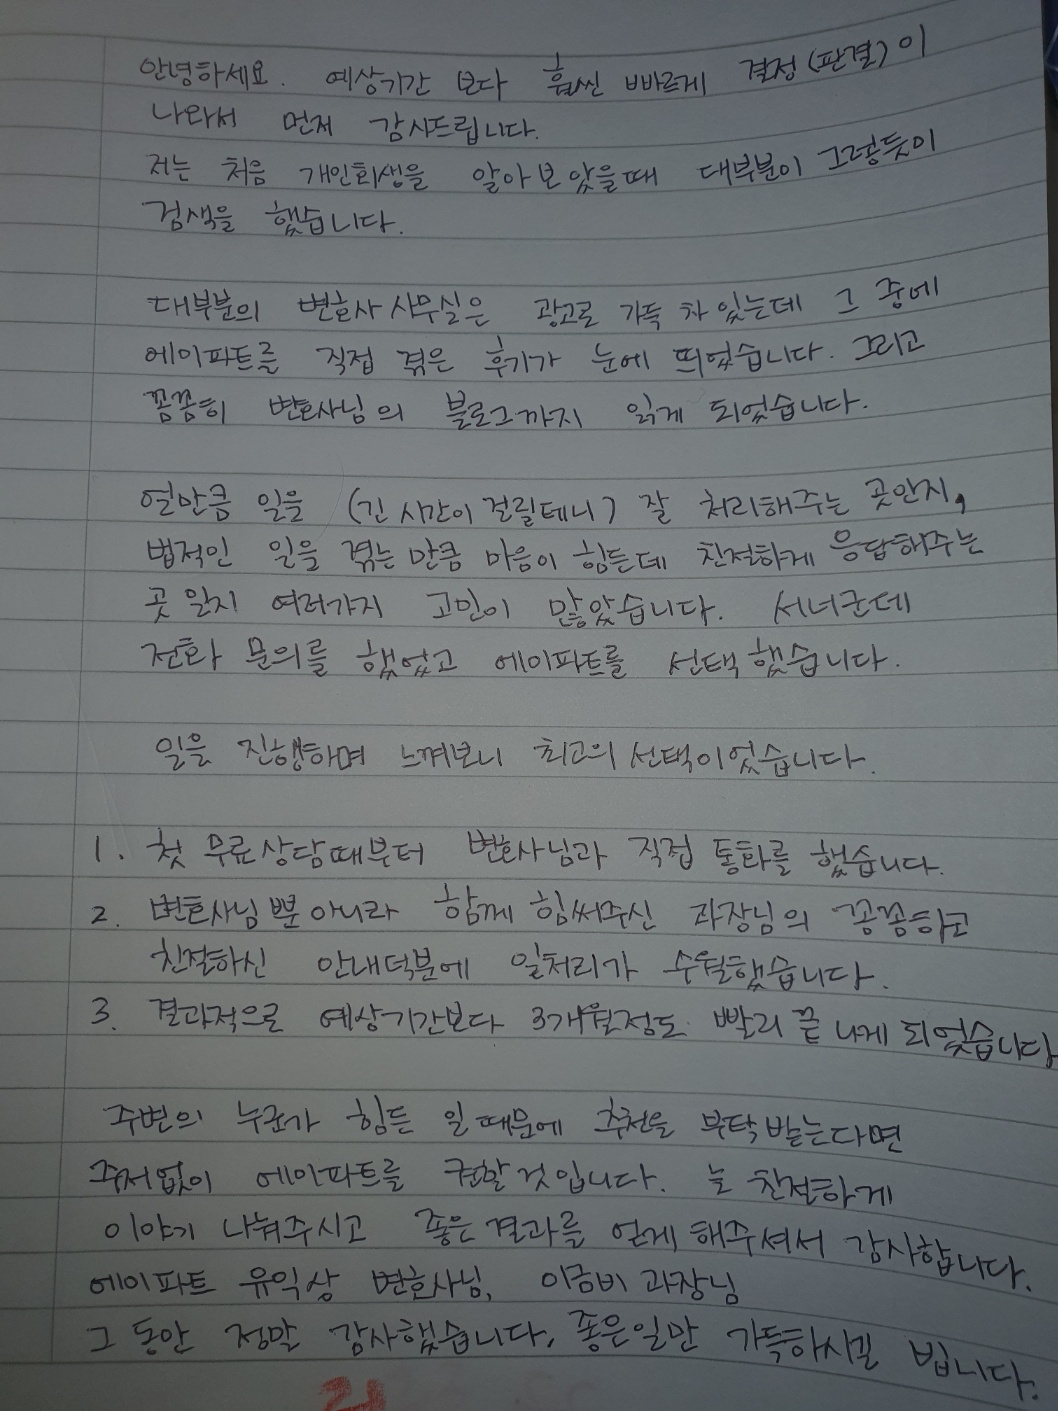 안녕하세요. 예상기간 보다 훨씬 빠르게 결정(판결)이
나와서 먼저 감사드립니다.
저는 처음 개인회생을 알아보았을때 대부분이 그렇듯이
검색을 했습니다.
대부분의 변호사 사무실은 광고로 가득 차 있는데 그 중에
에이파트를 직접 겪은 후기가 눈에 띄었습니다. 그리고
꼼꼼히 변호사님의 블로그까지 읽게 되었습니다.
얼만큼 일을 (긴 시간이 걸릴테니) 잘 처리해주는 곳인지,
법적인 일을 겪는 만큼 마음이 힘든데 친절하게 응답해주는
곳 일지 여러가지 고민이 많았습니다. 서너군데
전화 문의를 했었고 에이파트를 선택했습니다.
일을 진행하며 느껴보니 최고의 선택이었습니다.
1. 첫 무료상담때부터 변호사님과 직접 통화를 했습니다.
2. 변호사님뿐 아니라 함께 힘써주신 과장님의 꼼꼼하고
친절하신 안내덕분에 일처리가 수월했습니다.
3. 결과적으로 예상기간보다 3개월정도 빨리 끝나게 되었습니다
주변의 누군가 힘든 일 때문에 추천을 부탁받는다면
주저없이 에이파트를 권할것입니다. 늘 친절하게
이야기 나눠주시고 좋은 결과를 얻게 해주셔서 감사합니다.
에이파트 유익상 변호사님, 이금비 과장님
그 동안 정말 감사했습니다. 좋은일만 가득하시길 빕니다.